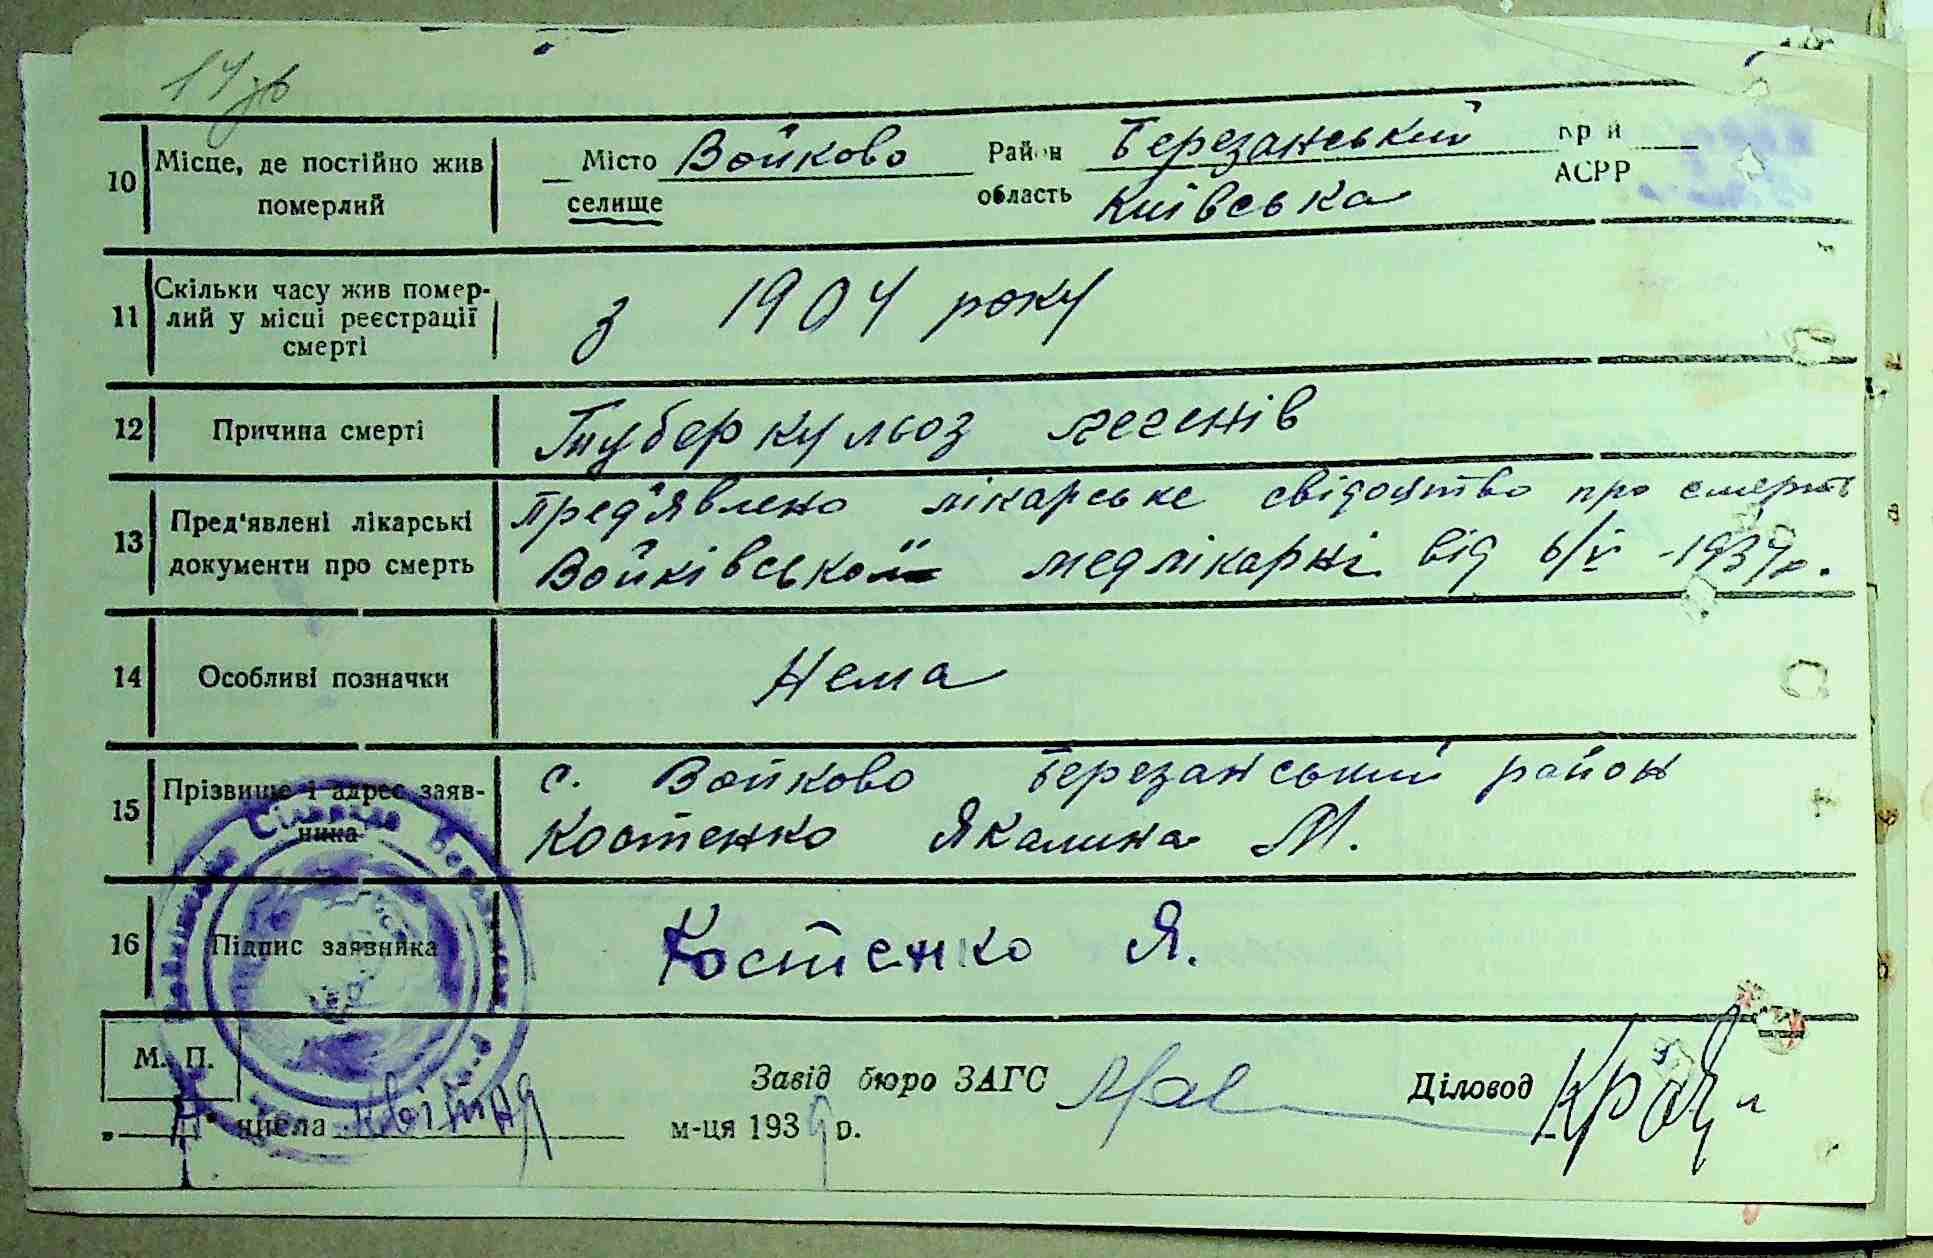 10 Місце, де постійно жив померлий
Місто Войково Район Березанський край
селище область Київська АСРР
11 Скільки часу жив помер-
лий у місці реєстрації
смерті
з 1904 року
12 Причина смерті Туберкульоз легенів
13 Пред'явлені лікарські
документи про смерть
пред'явлено лікарське свідоцтво про смерть
Войківської медлікарні від 6/V-1939р.
14 Особливі позначки Нема
15 Прізвище і адрес заяв-
ника
с. Войково Березанський район
Костенко Якилина М.
16 Підпис заявника Костенко Я.
М. П.
Завід бюро ЗАГС Діловод
" " числа квітня м-ця 1939 р.